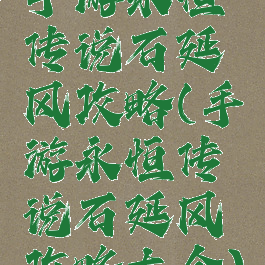 手游永恒
传说石延
风攻略(手
游永恒传
说石延风
攻略大全)